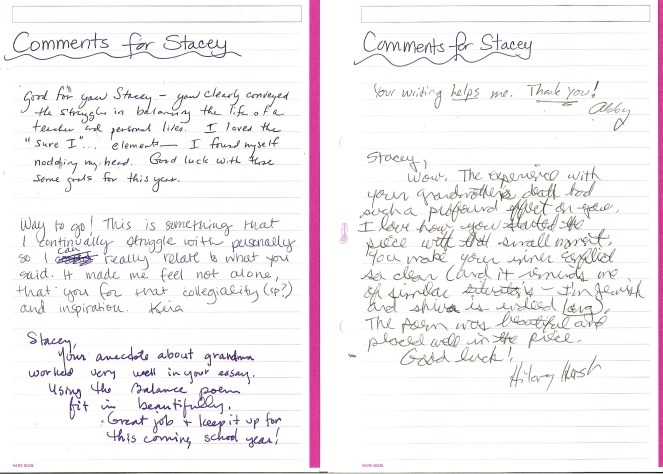 Comments for Stacey
Good for you Stacey – you clearly conveyed
the struggles in balancing the life of a
teacher and personal lives. I loved the
"Sure I"... elements — I found myself
nodding my head. Good luck with those
same goals for this year.
Way to go! This is something that
I continually struggle with personally
so I can really relate to what you
said. It made me feel not alone,
that you for that collegiality (sp?)
and inspiration. Keira
Stacey,
Your anecdote about grandma
worked very well in your essay.
Using the Balance poem
fit in beautifully.
Great job + keep it up for
this coming school year!
Comments for Stacey
Your writing helps me. Thank you!
Abby
Stacey,
Wow. The experience with
your grandmother's death had
such a profound effect on you.
I love how you started the
piece with that small moment.
You make your inner conflict
so clear (and it reminds me
of similar – I'm Jewish
and shiva is indeed long).
The poem was beautiful and
placed well in the piece.
Good luck!
Hilary